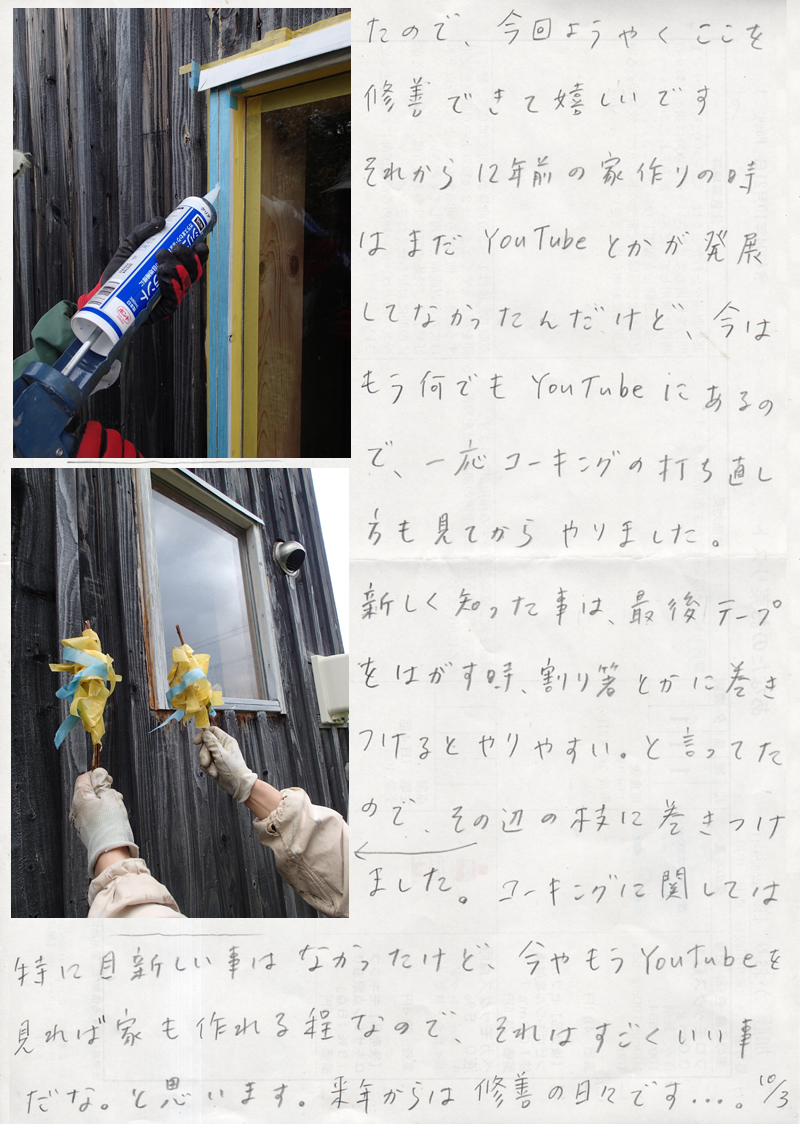 たので、今回ようやくここを
修善できて嬉しいです
それから12年前の家作りの時
はまだYouTubeとかが発展
してなかったんだけど、今は
もう何でもYouTubeにあるの
で、一応コーキングの打ち直し
方も見てからやりました。
新しく知った事は、最後テープ
をはがす時、割り箸とかに巻き
つけるとやりやすい。と言ってた
ので、その辺の枝に巻きつけ
ました。コーキングに関しては
特に目新しい事はなかったけど、今やもうYouTubeを
見れば家も作れる程なので、それはすごくいい事
だな。と思います。来年からは修善の日々です…。10/3